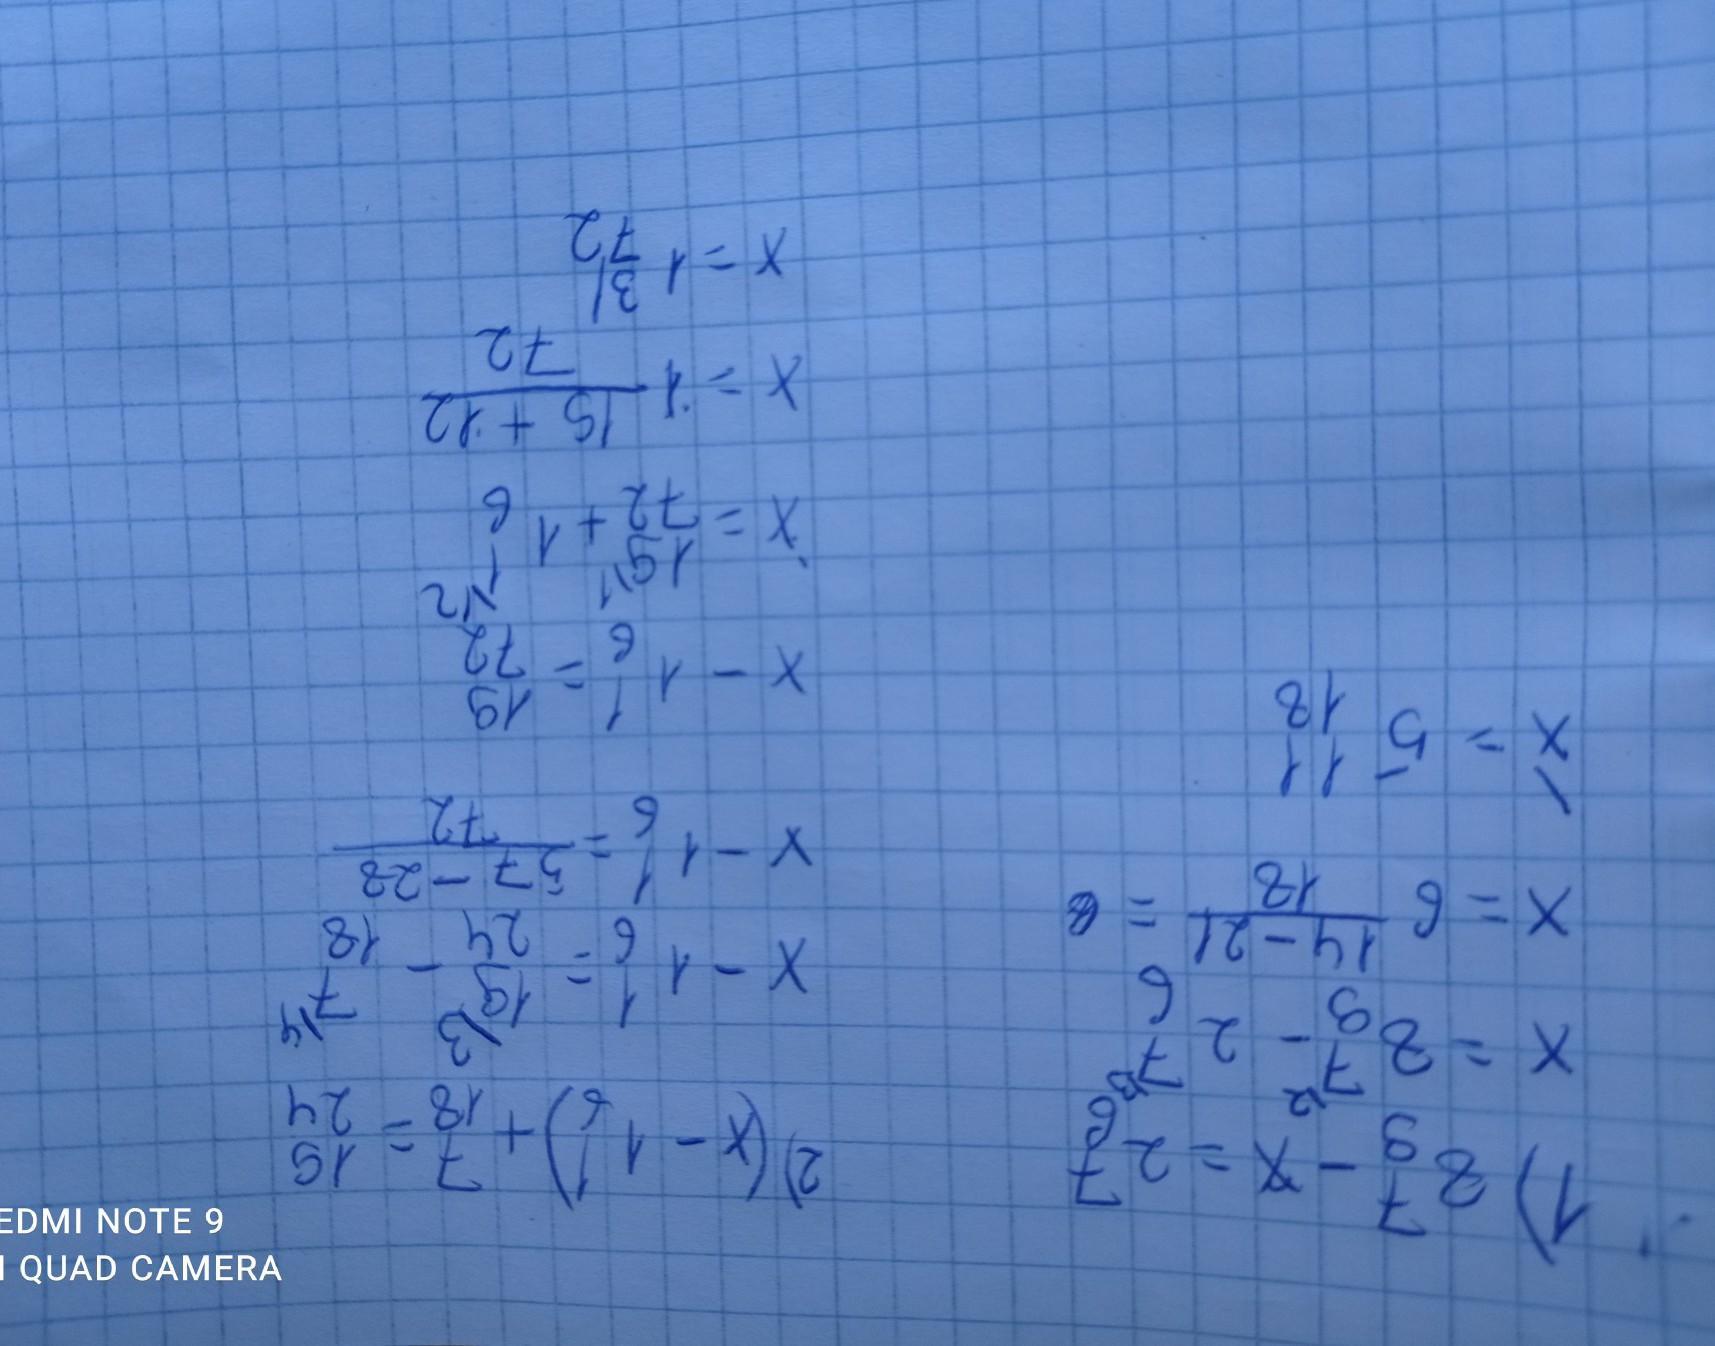 1) 8 7/9 - x = 2 7/6
x = 8 7\2/9 - 2 7\3/6
x = 6 14 - 21/18 =
x = 5 11/18
2) (x - 1 1/6) + 7/18 = 19/24
x - 1 1/6 = 19\3/24 - 7\4/18
x - 1 1/6 = 57 - 28/72
x - 1 1/6 = 19/72
x = 19\1/72 + 1 1\12/6
x = 1 19 + 12/72
x = 1 31/72
EDMI NOTE 9
I QUAD CAMERA